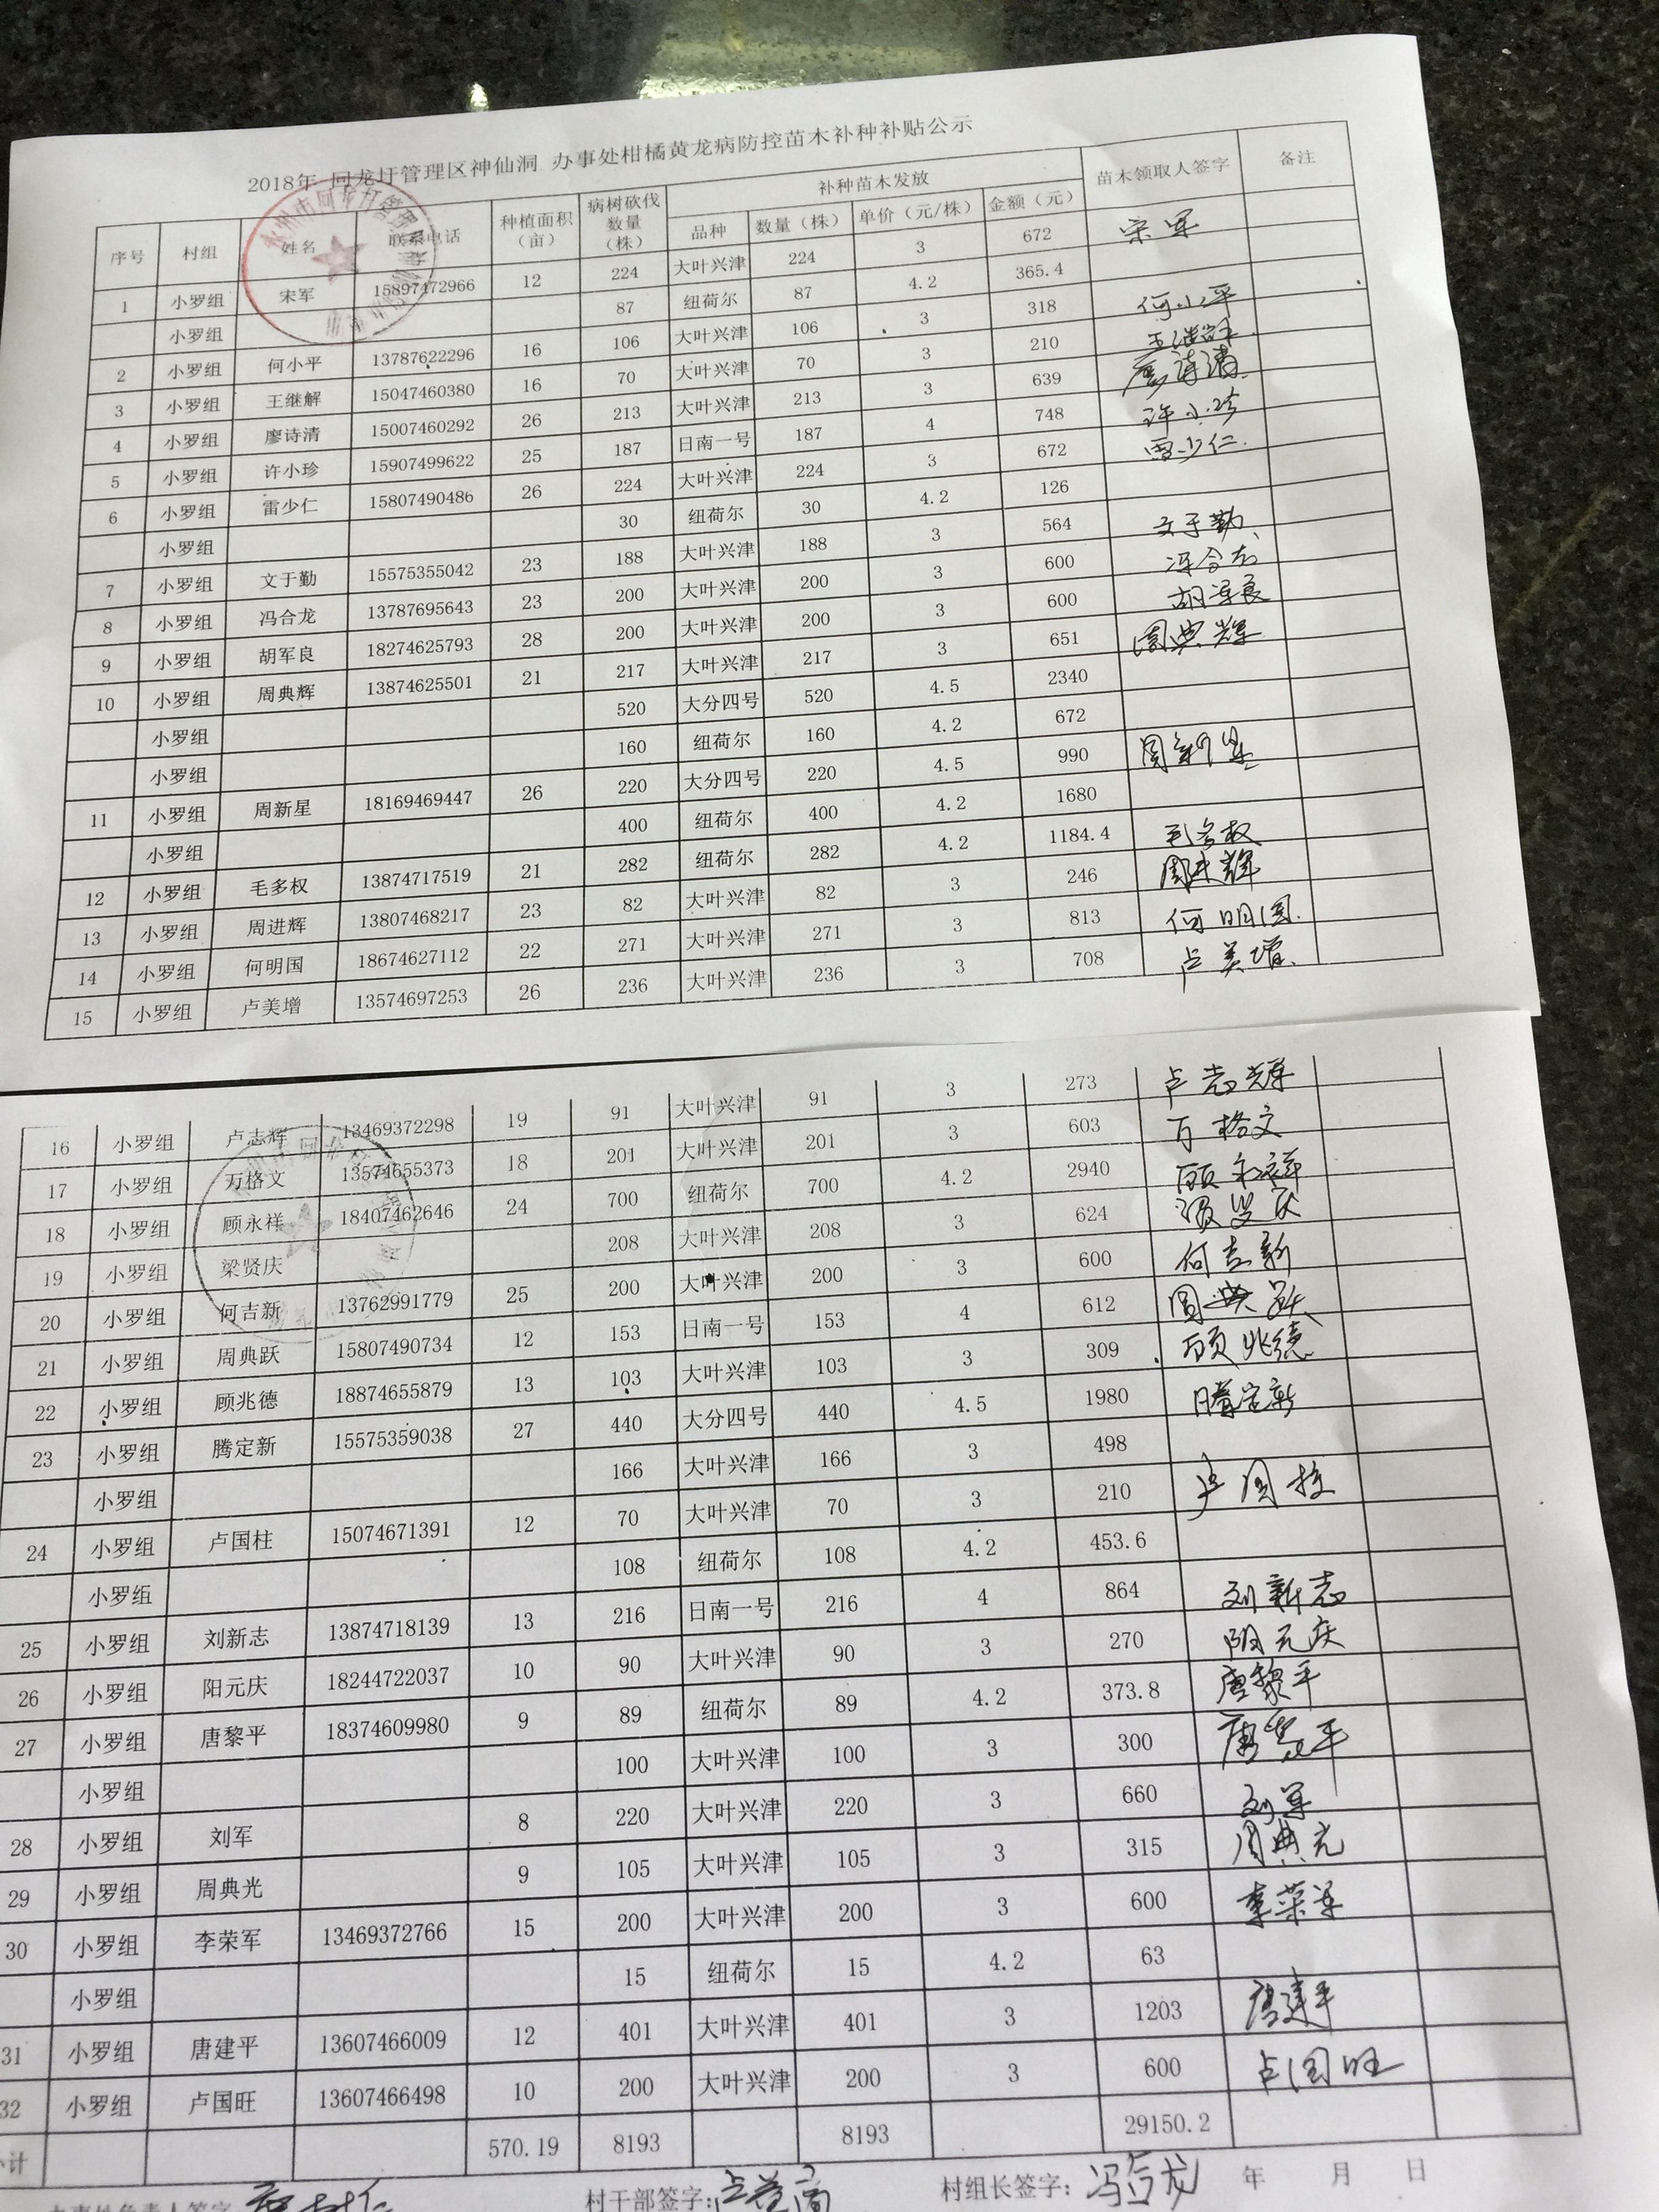 2018年 回龙圩管理区神仙洞 办事处柑橘黄龙病防控苗木补种补贴公示
序号 村组 姓名 联系电话 种植面积（亩） 病树砍伐数量（株） 补种苗木发放 苗木领取人签字 备注
品种 数量（株） 单价（元/株） 金额（元）
1 小罗组 宋军 15897472966 12 224 大叶兴津 224 3 672 宋军
小罗组 87 纽荷尔 87 4.2 365.4
2 小罗组 何小平 13787622296 16 106 大叶兴津 106 3 318 何小平
3 小罗组 王继解 15047460380 16 70 大叶兴津 70 3 210 王继解
4 小罗组 廖诗清 15007460292 26 213 大叶兴津 213 3 639 廖诗清
5 小罗组 许小珍 15907499622 25 187 日南一号 187 4 748 许小珍
6 小罗组 雷少仁 15807490486 26 224 大叶兴津 224 3 672 雷少仁
小罗组 30 纽荷尔 30 4.2 126
7 小罗组 文于勤 15575355042 23 188 大叶兴津 188 3 564 文于勤
8 小罗组 冯合龙 13787695643 23 200 大叶兴津 200 3 600 冯合龙
9 小罗组 胡军良 18274625793 28 200 大叶兴津 200 3 600 胡军良
10 小罗组 周典辉 13874625501 21 217 大叶兴津 217 3 651 周典辉
小罗组 520 大分四号 520 4.5 2340
小罗组 160 纽荷尔 160 4.2 672
11 小罗组 周新星 18169469447 26 220 大分四号 220 4.5 990 周新星
小罗组 400 纽荷尔 400 4.2 1680
12 小罗组 毛多权 13874717519 21 282 纽荷尔 282 4.2 1184.4 毛多权
13 小罗组 周进辉 13807468217 23 82 大叶兴津 82 3 246 周进辉
14 小罗组 何明国 18674627112 22 271 大叶兴津 271 3 813 何明国
15 小罗组 卢美增 13574697253 26 236 大叶兴津 236 3 708 卢美增
16 小罗组 卢志辉 13469372298 19 91 大叶兴津 91 3 273 卢志辉
17 小罗组 万格文 13574655373 18 201 大叶兴津 201 3 603 万格文
18 小罗组 顾永祥 18407462646 24 700 纽荷尔 700 4.2 2940 顾永祥
19 小罗组 梁贤庆 208 大叶兴津 208 3 624
20 小罗组 何吉新 13762991779 25 200 大叶兴津 200 3 600 何吉新
21 小罗组 周典跃 15807490734 12 153 日南一号 153 4 612 周典跃
22 小罗组 顾兆德 18874655879 13 103 大叶兴津 103 3 309 顾兆德
23 小罗组 腾定新 15575359038 27 440 大分四号 440 4.5 1980 腾定新
小罗组 166 大叶兴津 166 3 498
24 小罗组 卢国柱 15074671391 12 70 大叶兴津 70 3 210 卢国柱
小罗组 108 纽荷尔 108 4.2 453.6
25 小罗组 刘新志 13874718139 13 216 日南一号 216 4 864 刘新志
26 小罗组 阳元庆 18244722037 10 90 大叶兴津 90 3 270 阳元庆
27 小罗组 唐黎平 18374609980 9 89 纽荷尔 89 4.2 373.8 唐黎平
小罗组 100 大叶兴津 100 3 300 唐黎平
28 小罗组 刘军 8 220 大叶兴津 220 3 660 刘军
29 小罗组 周典光 9 105 大叶兴津 105 3 315 周典光
30 小罗组 李荣军 13469372766 15 200 大叶兴津 200 3 600 李荣军
小罗组 15 纽荷尔 15 4.2 63
31 小罗组 唐建平 13607466009 12 401 大叶兴津 401 3 1203 唐建平
32 小罗组 卢国旺 13607466498 10 200 大叶兴津 200 3 600 卢国旺
小计 570.19 8193 8193 29150.2
村干部签字： 村组长签字：冯合龙 年 月 日